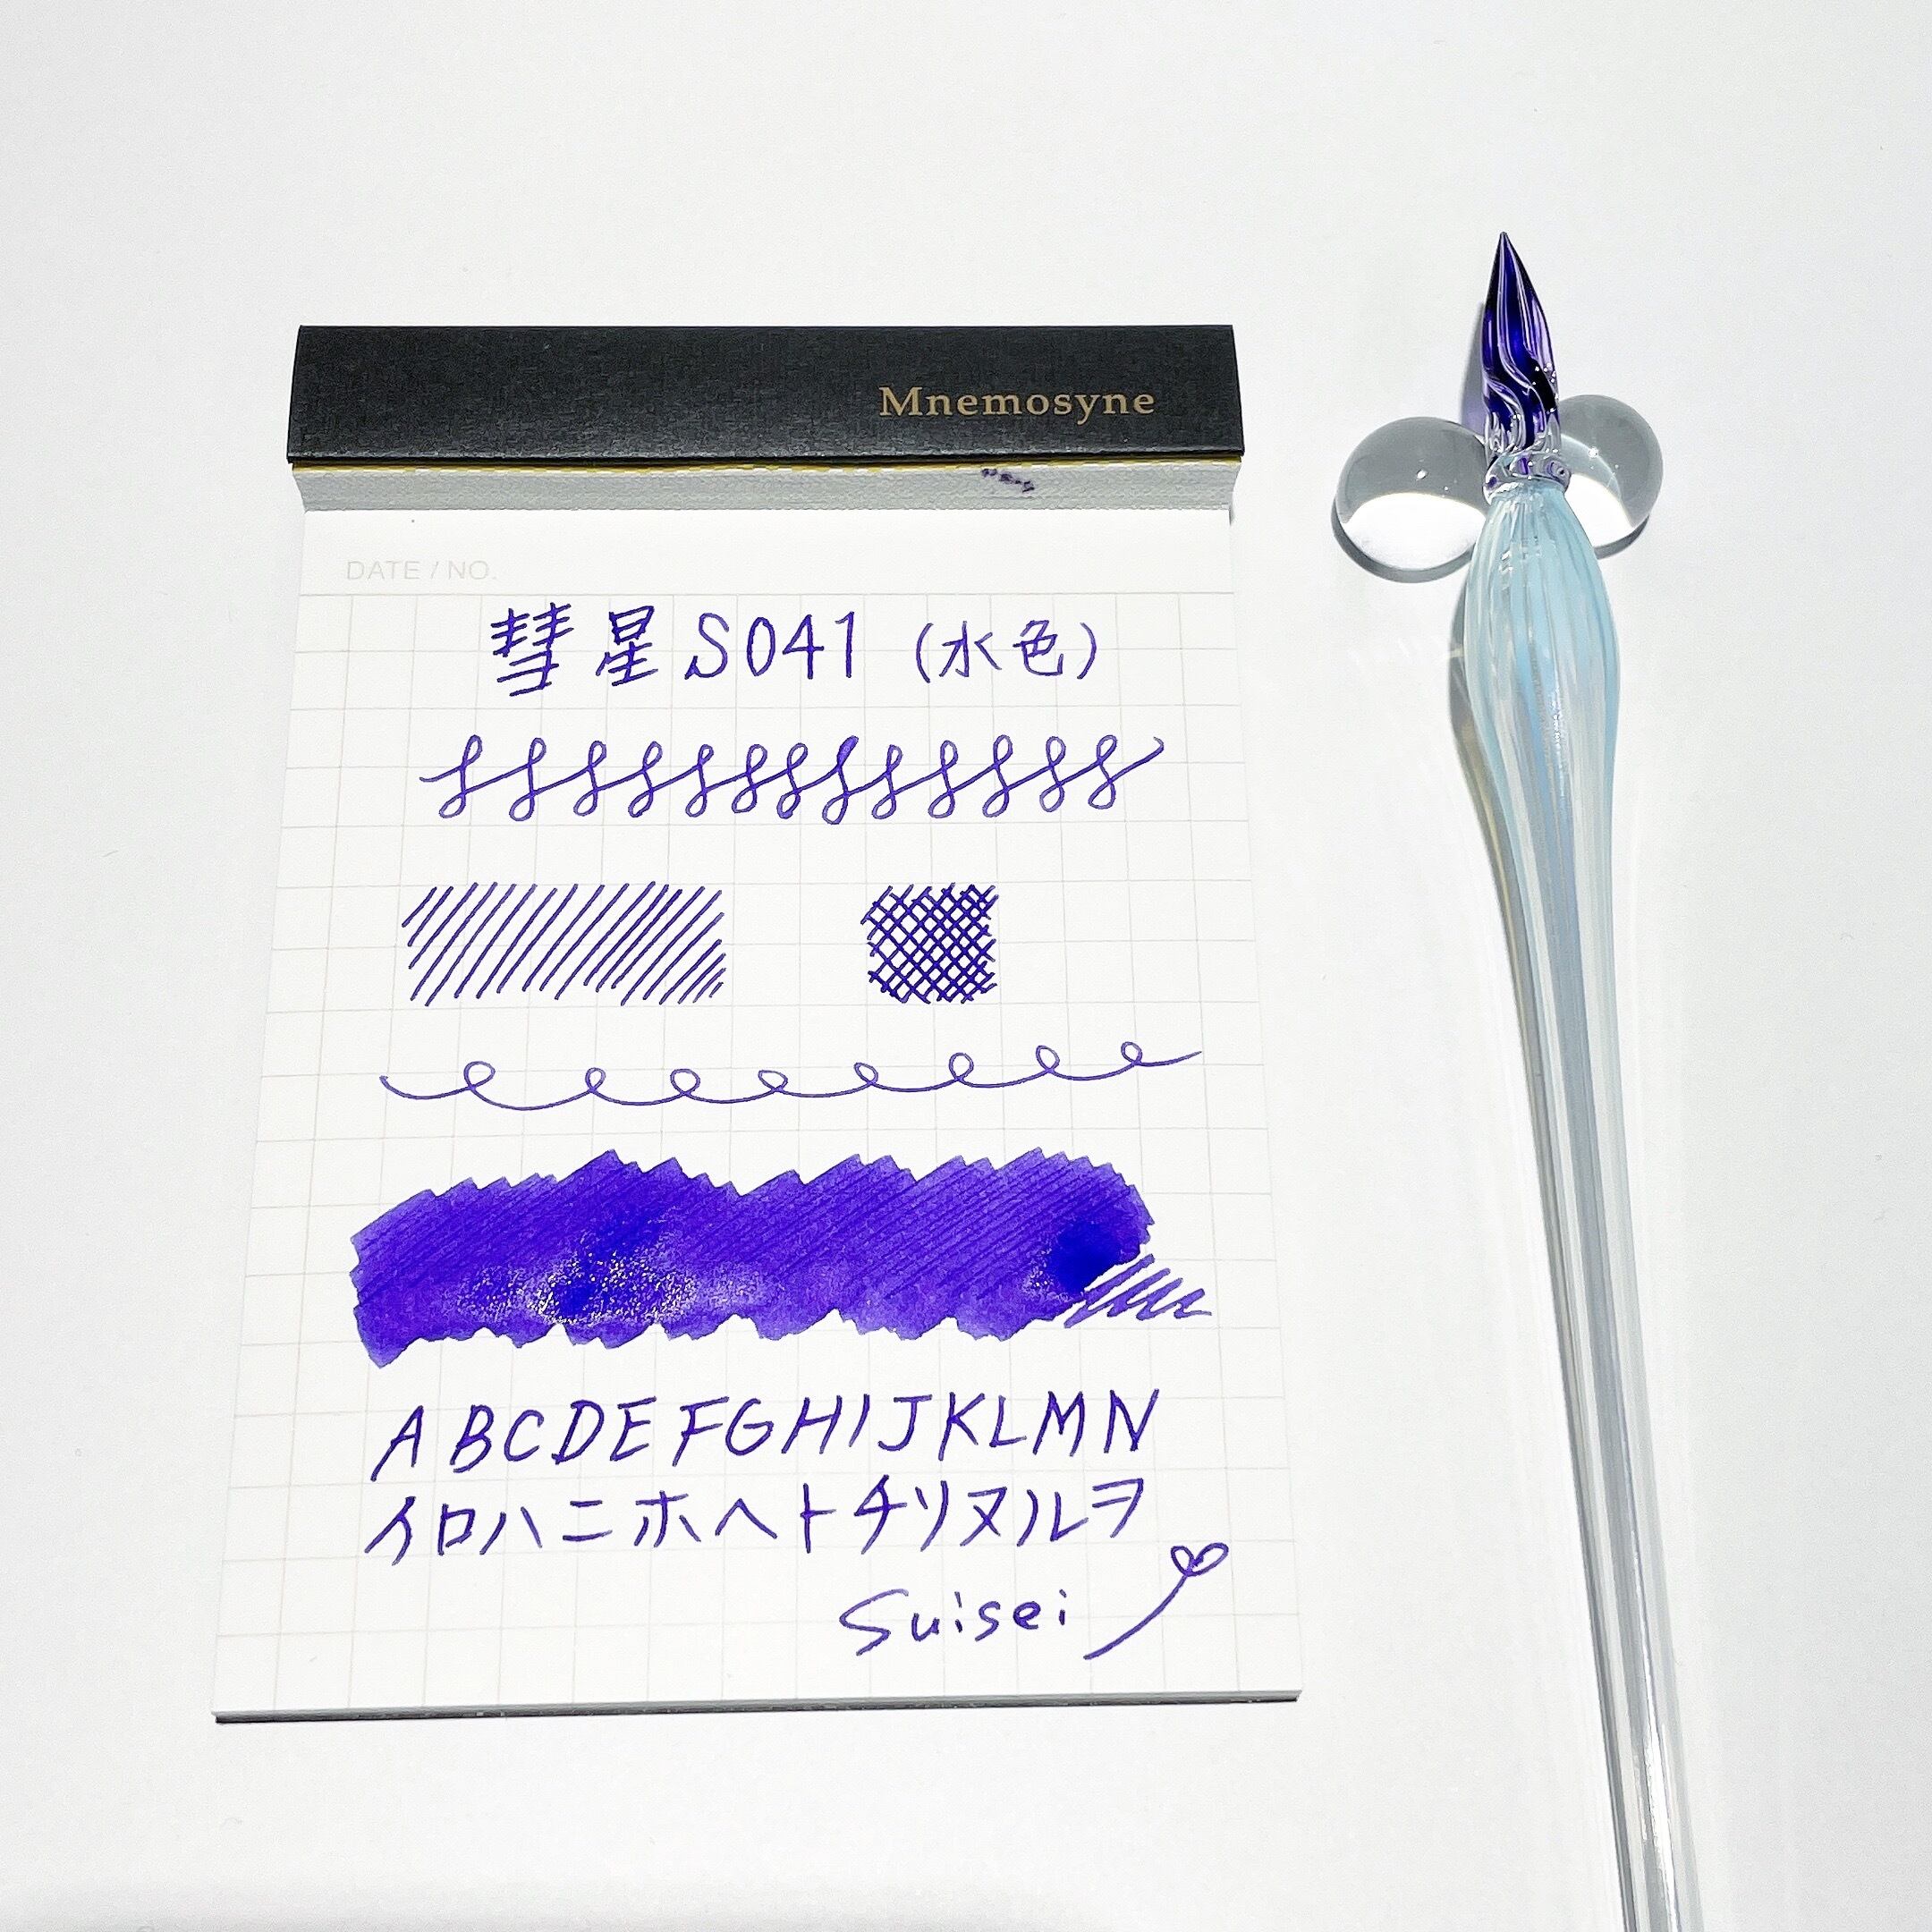 Mnemosyne
DATE / NO.
彗星S041 (水色)
ABCDEFGHIJKLMN
イロハニホヘトチリヌルヲ
Suisei